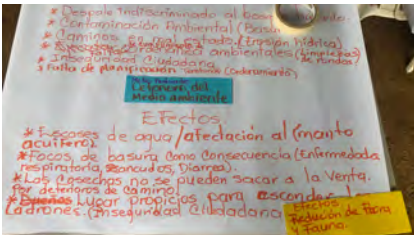 * Despale indiscriminado al bosque
* Contaminación Ambiental (Basura
* Caminos en mal estado. (Erosión hídrica)
ambientales (limpiezas de rondas)
* Inseguridad Ciudadana
* Falta de planificación
Deterioro del
Medio ambiente
Efectos
* Escases de agua/afectación al (manto
acuífero).
* Focos de basura como Consecuencia (Enfermedada
respiratoria, Zancudos, Diarrea).
* Los Cosechas no se pueden sacar a la Venta.
Por deterioros de Camino.
* Buenos Lugar propicios para esconder
Ladrones. (Inseguridad Ciudadana
Efectos
Redución de Flora
y Fauna.